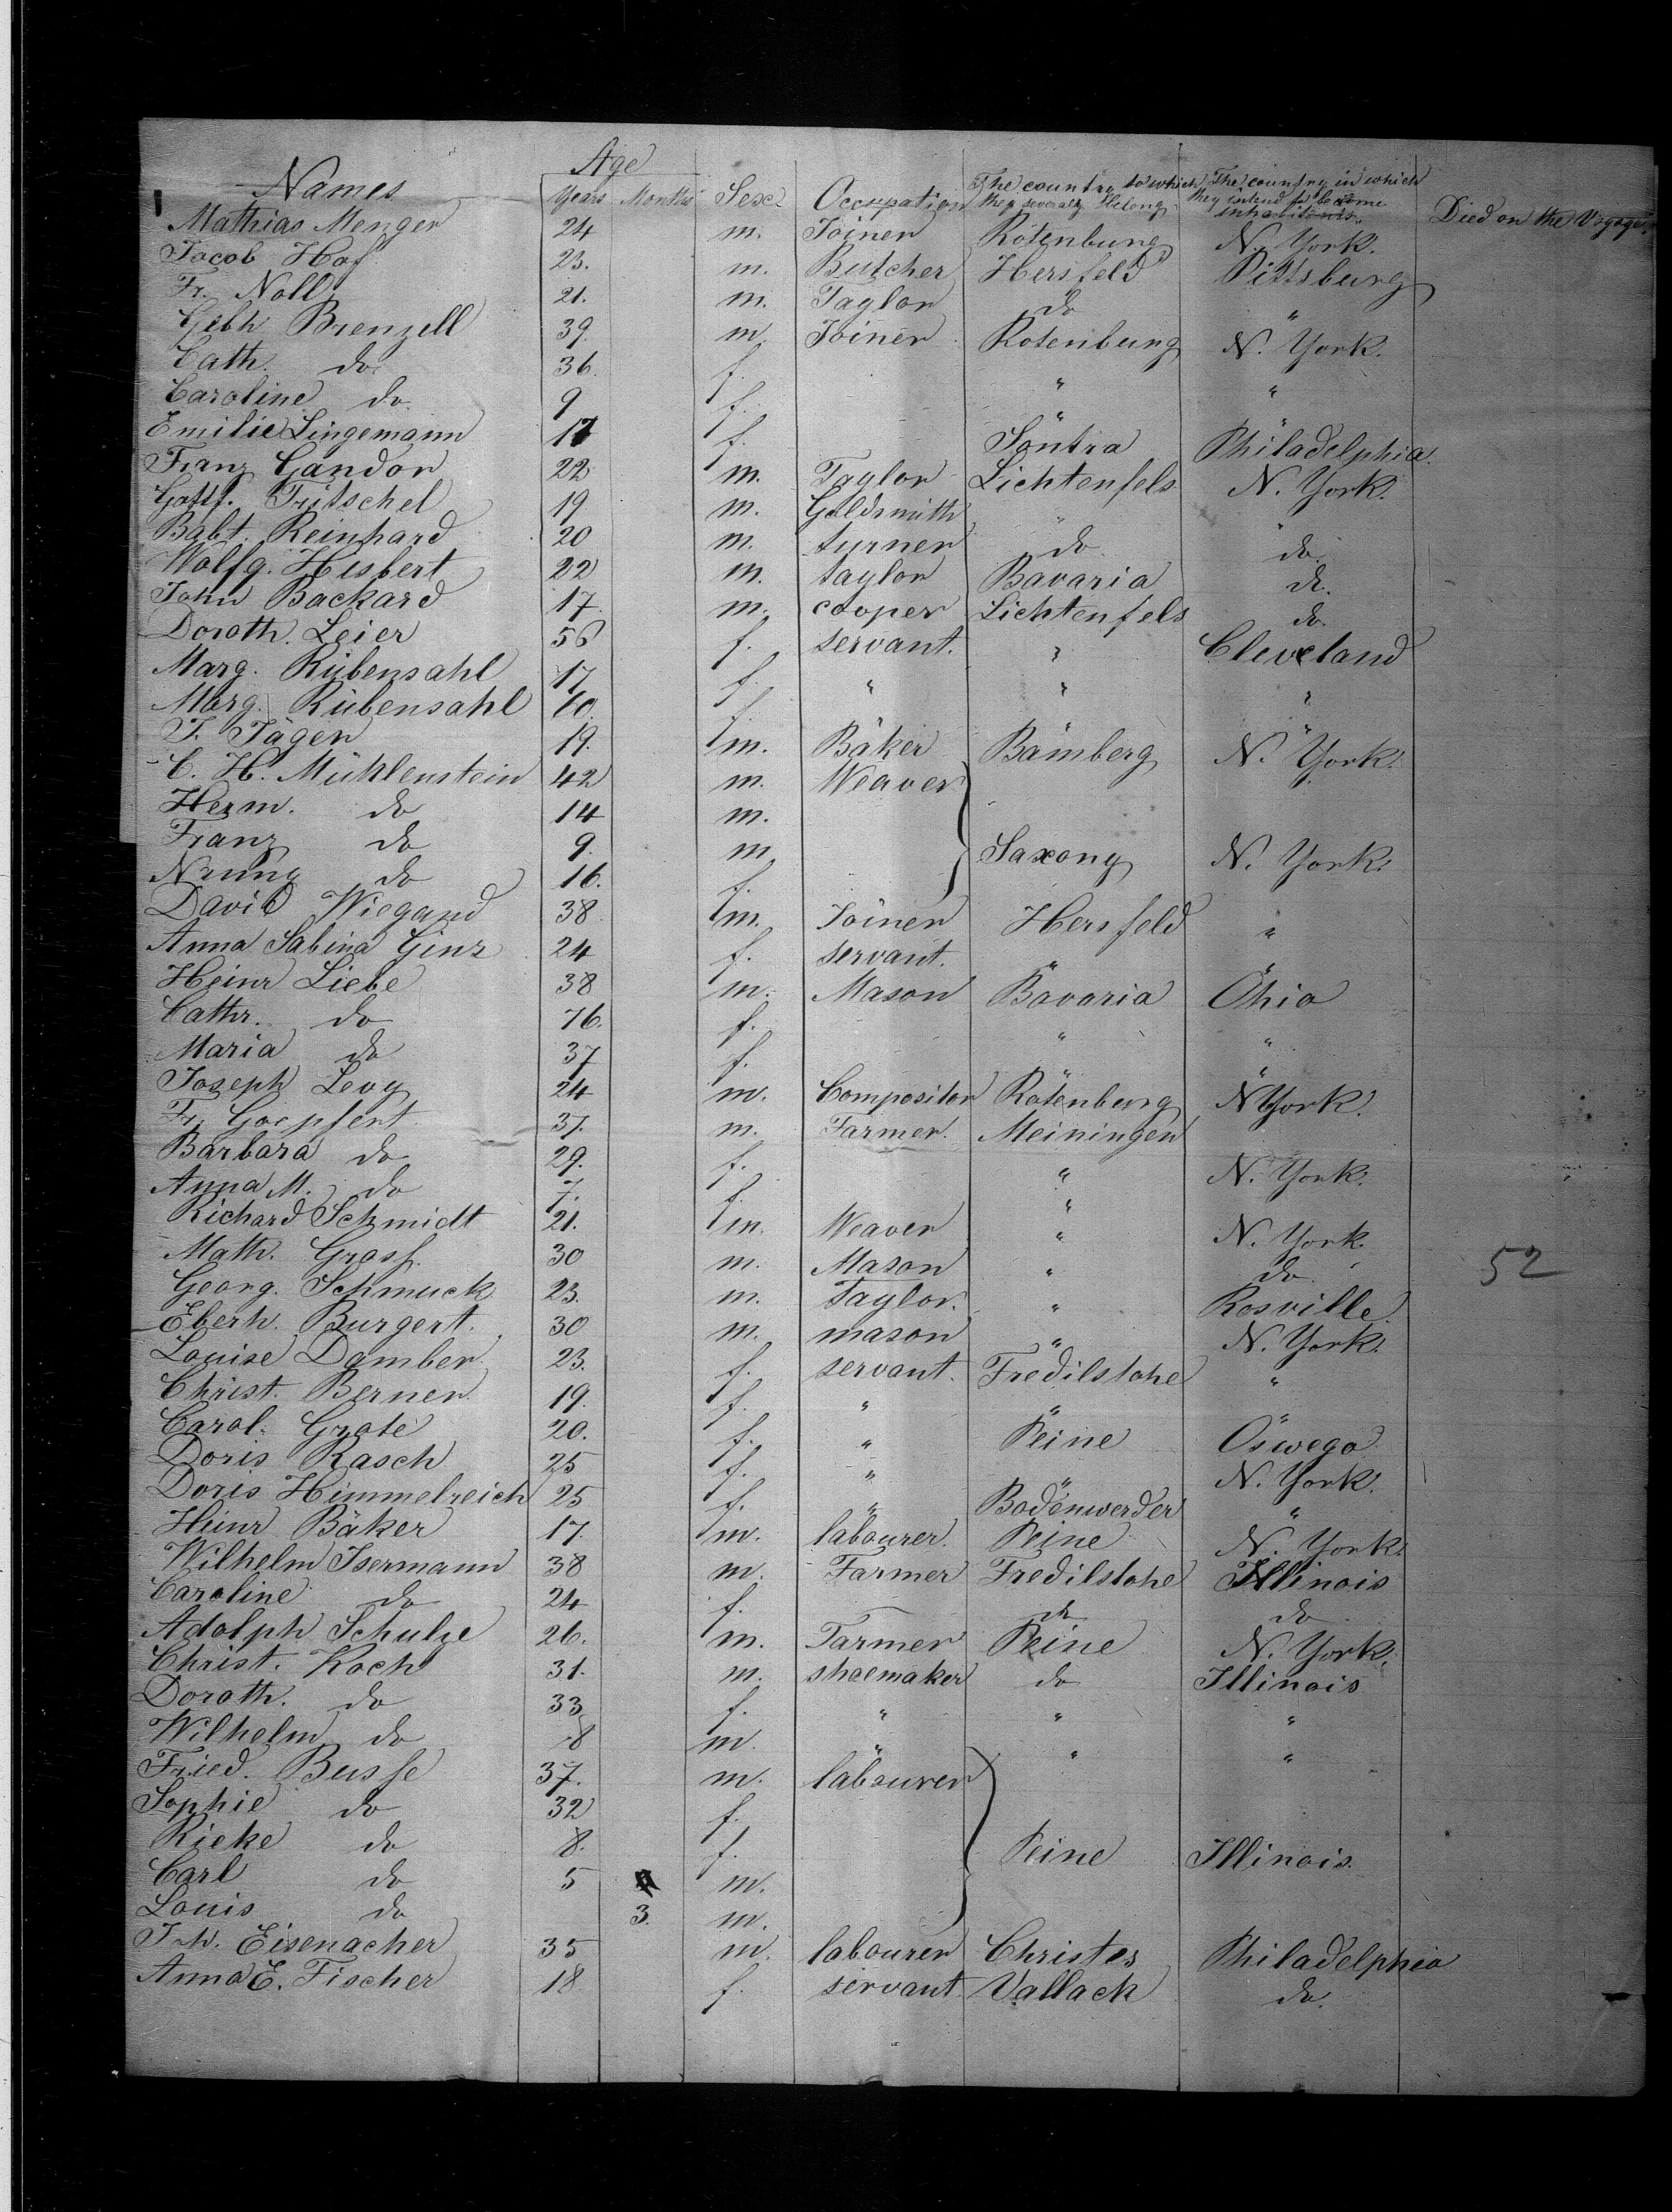 Names Age Years Months Sex Occupation The country to which they severaly belong The country in which they intend to become inhabitants Died on the Voyage.
Mathias Menger 24 m. Joiner Rotenburg N. York.
Jacob Hof 23. m. Butcher Hersfeld Pittsburg
Fr. Noll 21. m. Taylor do "
Gebh Brenzell 39. m. Joiner Rotenburg N. York.
Cath. do 36. f. " "
Caroline do. 9 f. "
Emilie Lingemann 17 f. Sontra Philadelphia.
Franz Gandor 22 m. Taylor Lichtenfels N. York.
Gottf. Fritschel 19 m. Goldsmith " "
Babt. Reinhard 20 m. turner do do.
Wolfg. Hesbert 22 m. taylor Bavaria do.
John Backard 17. m. cooper Lichtenfels do.
Doroth. Leier 56 f. servant. " Cleveland
Marg. Rübensahl 17 f. " " "
Marg. Rübensahl 10. f. "
F. Jäger 19. m. Bäker Bamberg N. York.
C. H. Mühlenstein 42 m. Weaver
Herm. do 14 m.
Franz do 9. m Saxony N. York.
do 16. f.
David Wiegand 38 m. Joiner Hersfeld "
Anna Sabina Ginz 24 f. servant. " "
Heinr Liebe 38 m. Mason Bavaria Ohio
Cathr. do 76. f. " "
Maria do 37 f. " "
Joseph Levy 24 m. Compositor Rotenburg N York.
Fr. Goepfert 37. m. Farmer. Meiningen
Barbara do 29. f. " N. York.
Anna M. do 7. f. "
Richard Schmidt 21. m. Weaver " N. York.
Math. Grass. 30 m. Mason " do 52
Georg. Schmuck 23. m. Taylor. " Rosville.
Eberh. Burgert. 30 m. mason " N. York.
Louise Damber 23. f. servant. Fredilslohe "
Christ. Berner 19. f. " " "
Carol. Grote 20. f. " Peine Oswego
Doris Rasch 25 f. " " N. York.
Doris Himmelreich 25 f. " Bodenwerder "
Heinr Bäker 17. m. labourer. Peine N. York.
Wilhelm Isermann 38 m. Farmer Fredilslohe Illinois
Caroline do 24 f. do do
Adolph Schulze 26. m. Farmer Peine N. York.
Christ. Koch 31. m. shoemaker do Illinois
Doroth. do 33 f. " " "
Wilhelm do 8 m. " " "
Fried. Busse 37. m. labourer
Sophie do 32 f.
Rieke do 8. f. Peine Illinois.
Carl do 5 m.
Louis do 3. m.
Joh. Eisenacher 35 m. labourer Christes Philadelphia
Anna E. Fischer 18 f. servant Vallack do.